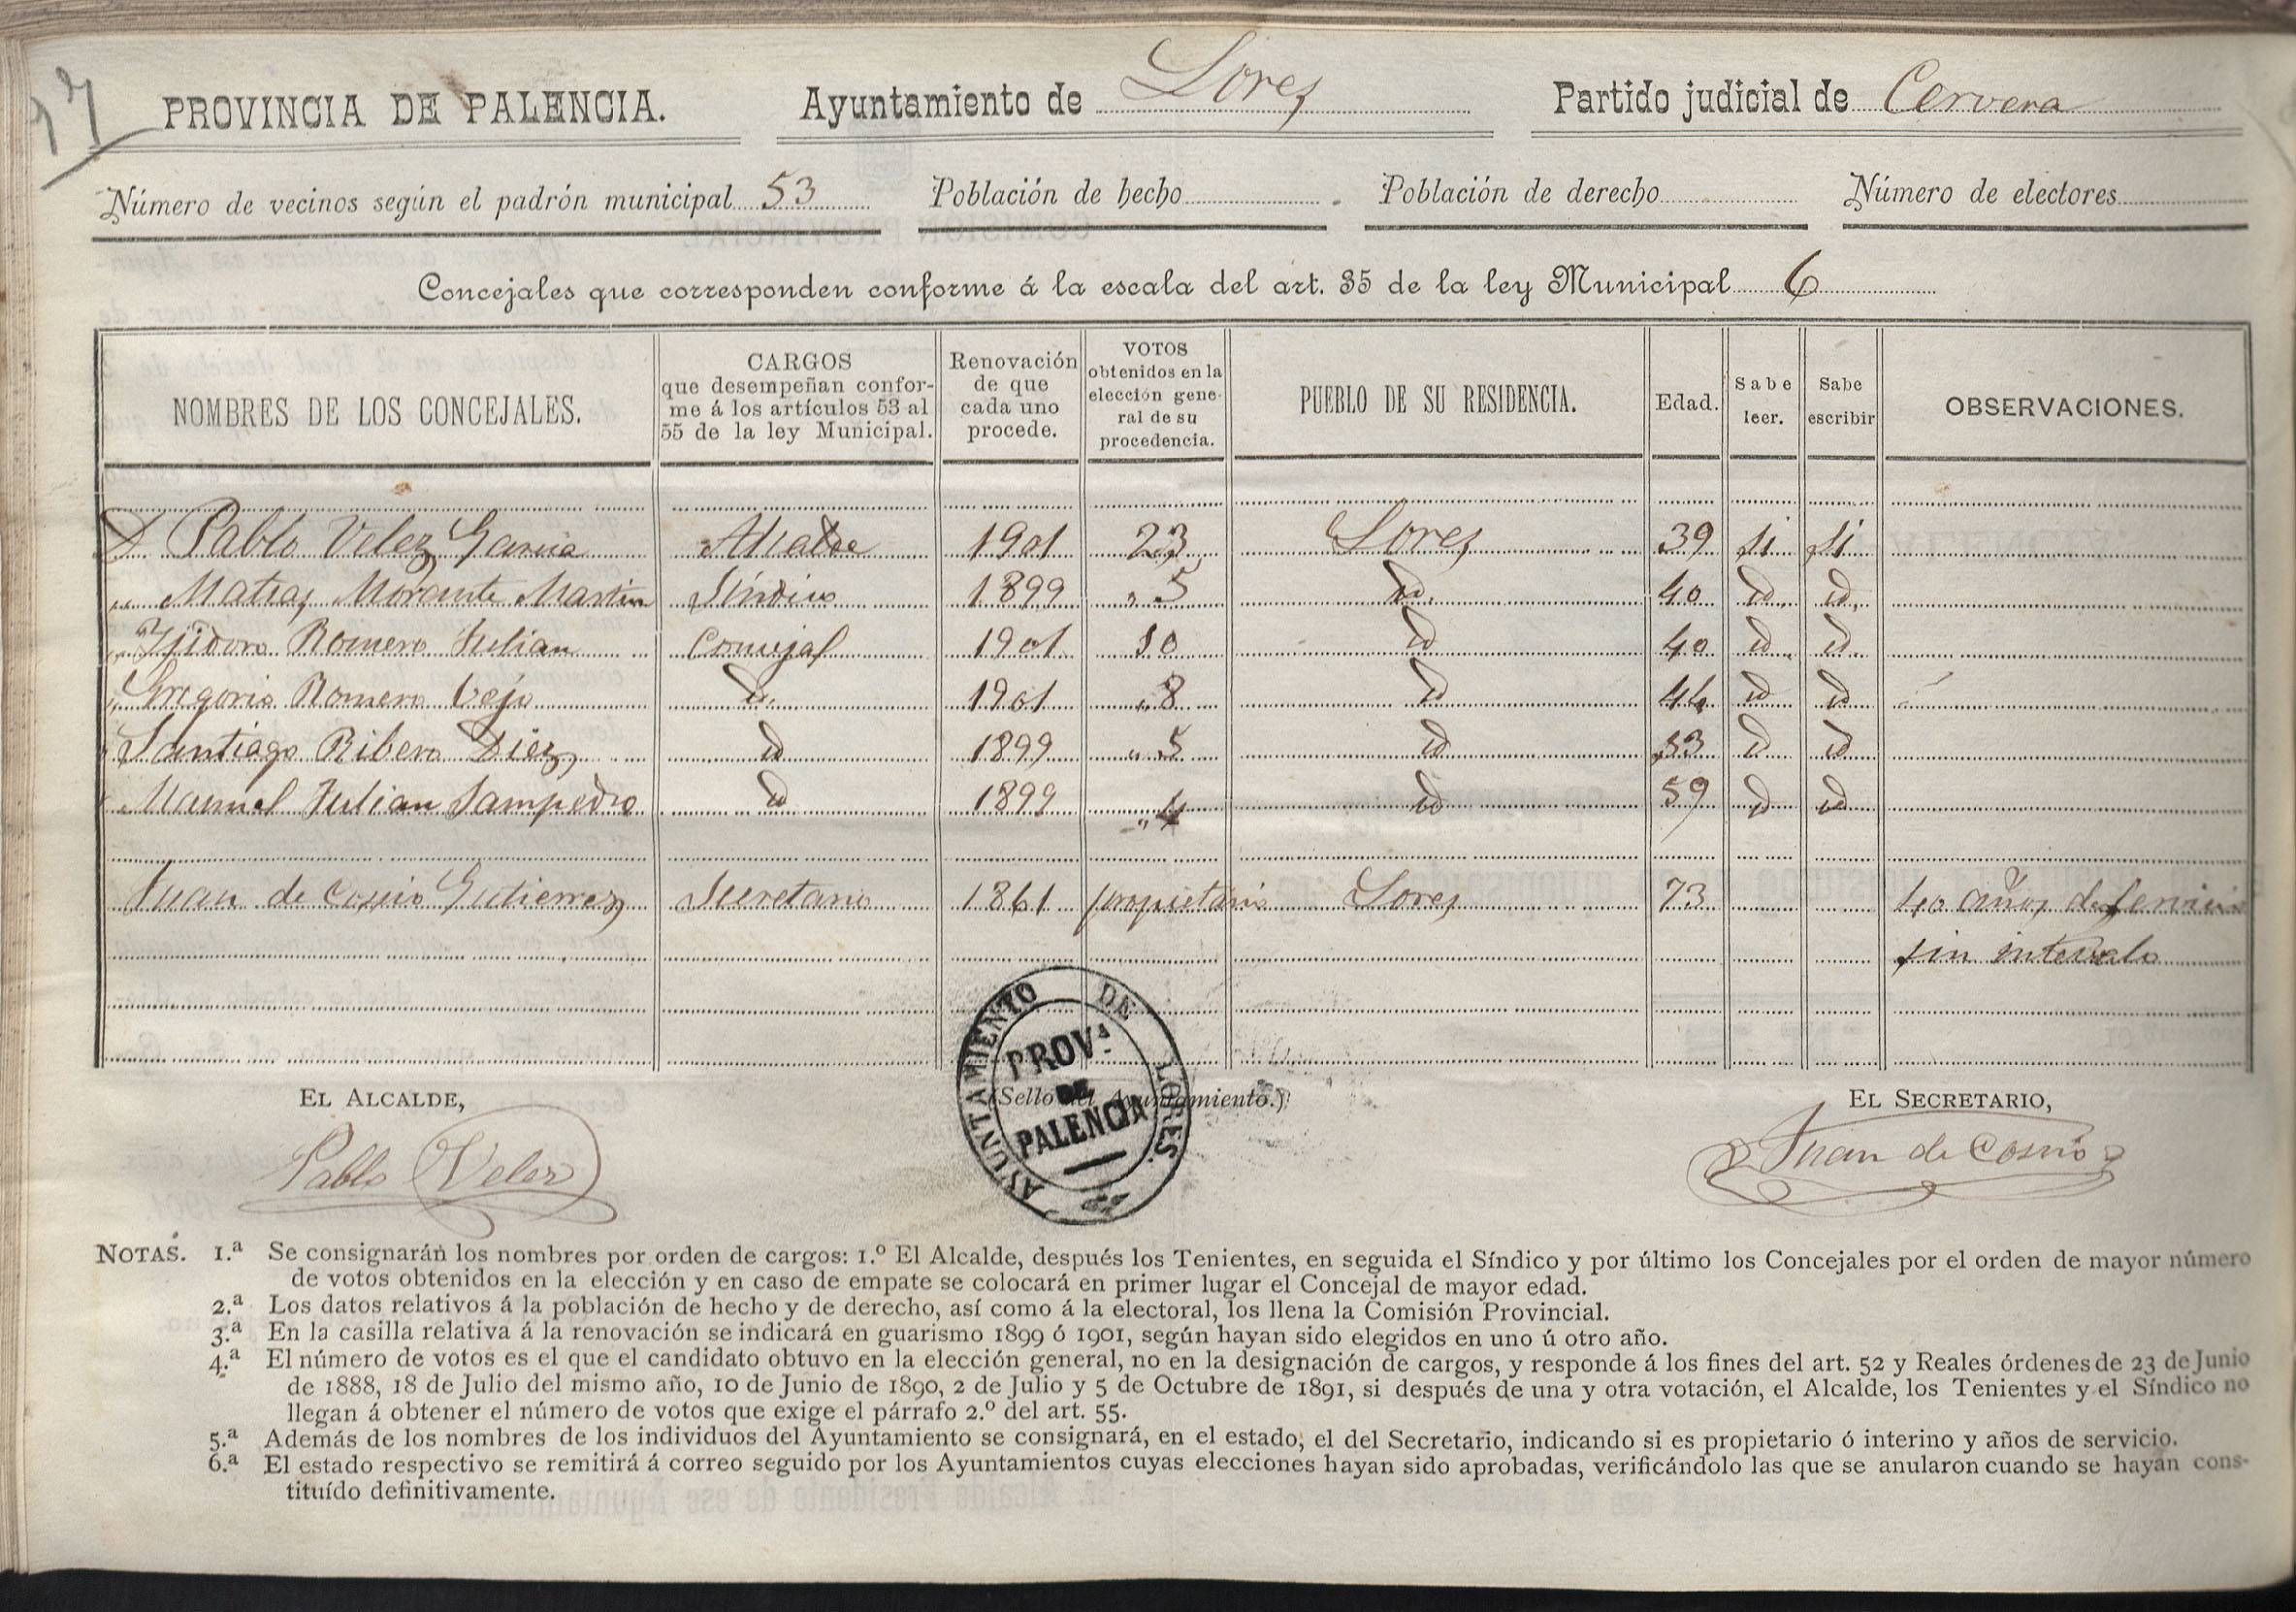 PROVINCIA DE PALENCIA. Ayuntamiento de Lores Partido judicial de Cervera
Número de vecinos según el padrón municipal 53 Población de hecho Población de derecho Número de electores
Concejales que corresponden conforme á la escala del art. 35 de la ley Municipal 6
NOMBRES DE LOS CONCEJALES.
CARGOS
que desempeñan confor-
me á los artículos 53 al
55 de la ley Municipal.
Renovación
de que
cada uno
procede.
VOTOS
obtenidos en la
elección gene-
ral de su
procedencia.
PUEBLO DE SU RESIDENCIA.
Edad.
Sabe
leer.
Sabe
escribir
OBSERVACIONES.
D. Pablo Velez Garcia Alcalde 1901 23 Lores 39 si si
" Matias Morante Martin Síndico 1899 " 5 id. 40 id. id.
" Isidoro Romero Julian Concejal 1901 10 id 40 id id.
" Gregorio Romero Vejo id. 1901 " 8 id 46 id id
" Santiago Ribero Diez id 1899 " 5 id 53 id id
" Manuel Julian Sampedro id 1899 " 4 id 59 id id
Juan de Cosio Gutierrez Secretario 1861 propietario Lores 73 40 años de servicio
sin intervalo
AYUNTAMIENTO DE LORES.
PROV.ª
DE
PALENCIA
EL ALCALDE, (Sello del Ayuntamiento.) EL SECRETARIO,
Pablo Velez Juan de Cosio
NOTAS. 1.ª Se consignarán los nombres por orden de cargos: 1.º El Alcalde, después los Tenientes, en seguida el Síndico y por último los Concejales por el orden de mayor número
de votos obtenidos en la elección y en caso de empate se colocará en primer lugar el Concejal de mayor edad.
2.ª Los datos relativos á la población de hecho y de derecho, así como á la electoral, los llena la Comisión Provincial.
3.ª En la casilla relativa á la renovación se indicará en guarismo 1899 ó 1901, según hayan sido elegidos en uno ú otro año.
4.ª El número de votos es el que el candidato obtuvo en la elección general, no en la designación de cargos, y responde á los fines del art. 52 y Reales órdenes de 23 de Junio
de 1888, 18 de Julio del mismo año, 10 de Junio de 1890, 2 de Julio y 5 de Octubre de 1891, si después de una y otra votación, el Alcalde, los Tenientes y el Síndico no
llegan á obtener el número de votos que exige el párrafo 2.º del art. 55.
5.ª Además de los nombres de los individuos del Ayuntamiento se consignará, en el estado, el del Secretario, indicando si es propietario ó interino y años de servicio.
6.ª El estado respectivo se remitirá á correo seguido por los Ayuntamientos cuyas elecciones hayan sido aprobadas, verificándolo las que se anularon cuando se hayan cons-
tituído definitivamente.